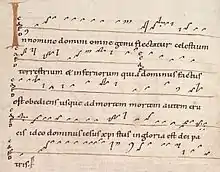 In nomine domini omne genu flectatur celestium
terrestrium et infernorum quia dominus factus
est obediens usque ad mortem mortem autem cru
cis ideo dominus iesus xpistus in gloria est dei pa
tris.